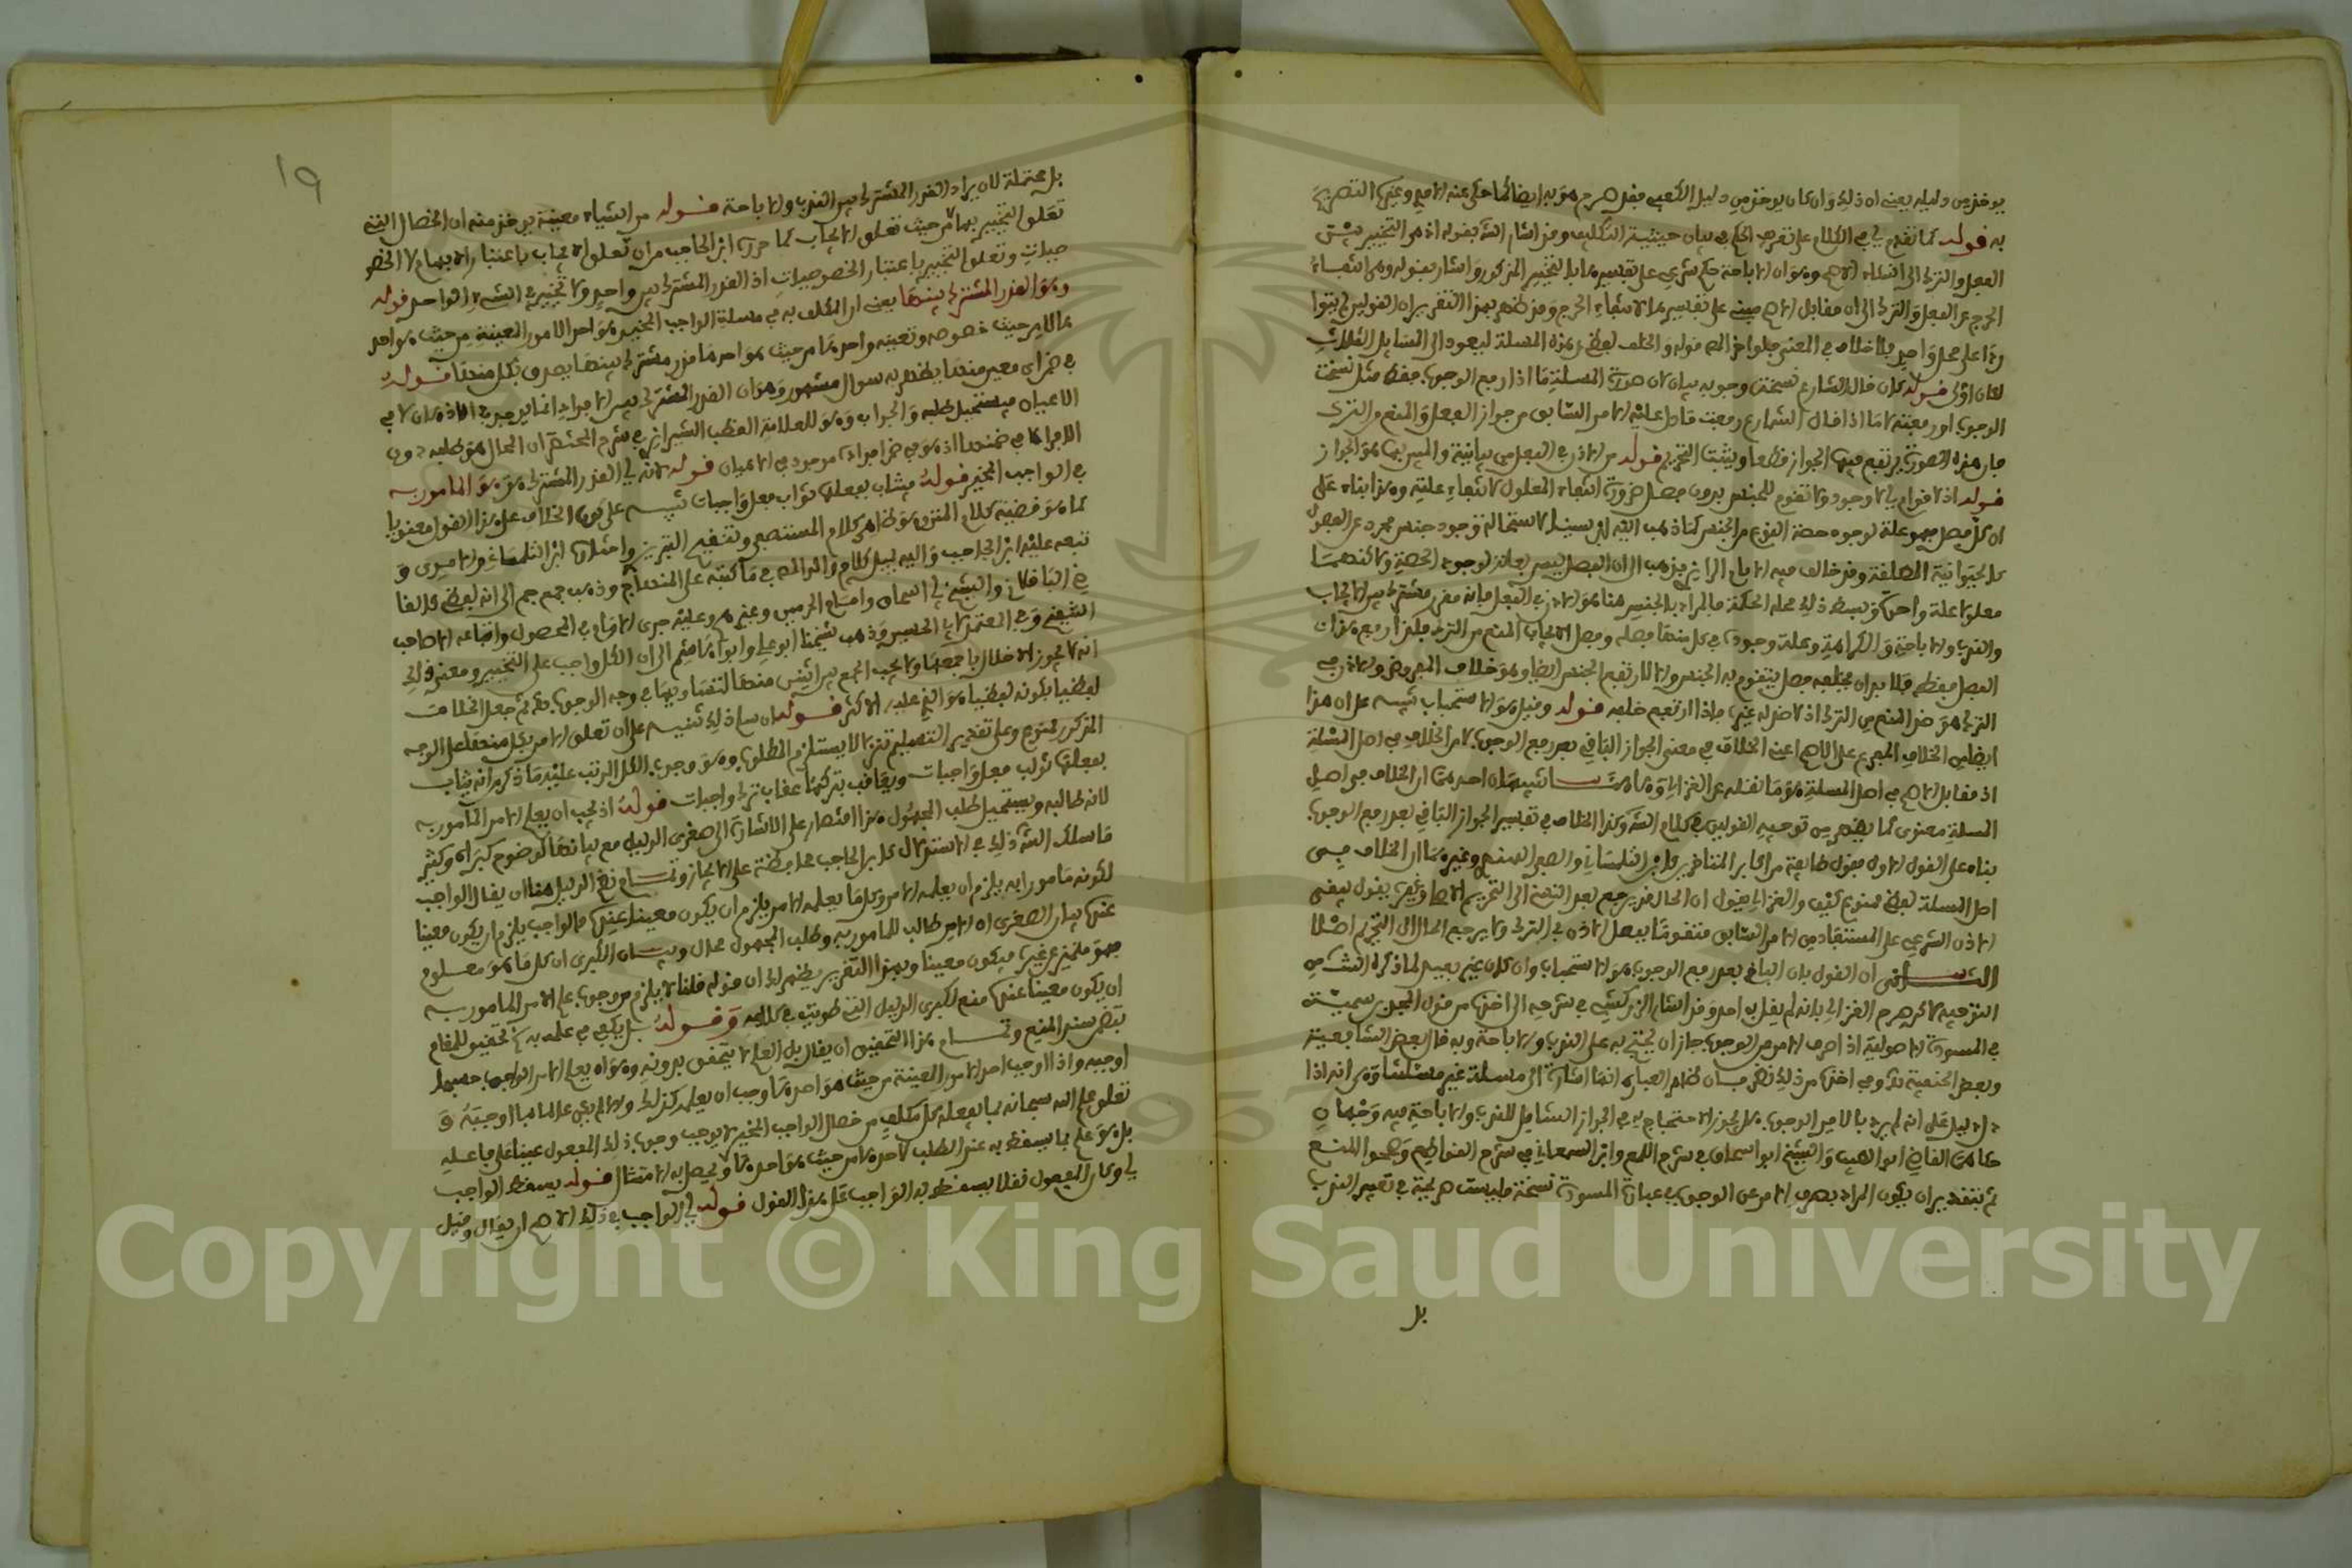 يوخذ من دليله يعني ان ذلك وان كان يوخذ من دليل الكعبي فقد صرح هو به ايضا كما حكى عنه الامدي وغيره التصريح
به قوله كما تقدم لي في الكلام على تعريف الحكم في بيان حيثية التكليف وقد اشار الش بقوله اذ هو التخيير بين
الفعل والترك الى انتفاء وهو ان الاباحة حكم شرعي على تفسيرها بالتخيير المذكور واشار بقوله وهي انتفاء
الحرج عن الفعل والترك الى ان مقابل الاصح مبني على تفسيرها لانتفاء الحرج وقد ظهر بهذا التقرير ان القولين لم يتواردا
على محل واحد فلا خلاف في المعنى فلو اخر المص قوله والخلف لفظي عن هذه المسلة ليعود الى المسايل الثلاث
لكان اولى قوله كان قال الشارع نسخت وجوبه بيان لان صورة المسلة ما اذا رفع الوجوب فقط مثل نسخت
الوجوب او رفعته لا ما اذا قال الشارع رفعت ما دل عليه الامر السابق من جواز الفعل والمنع من الترك
فان هذه الصورة يرتفع فيها الجواز قطعا ويثبت التحريم قوله من الاذن في الفعل من بيانية والمبين بها هو الجواز
قوله اذ لا قوام لي لا وجود ولا تقوم للجنس بدون فصل ضرورة انتفاء المعلول لانتفاء علته وهذا بناء على
ان كل فصل فهو علة لوجود حصة النوع من الجنس كما ذهب اليه ابن سينا لاستحالة وجود جنس مجرد عن الفصول
كالحيوانية المطلقة وقد خالف فيه الامام الرازي فذهب الى ان الفصل ليس بعلة لوجود الحصة ولاكنهما
معلولا علة واحدة وبسط ذلك محله الحكمة فالمراد بالجنس هنا هو الاذن في الفعل فانه قدر مشترك بين الايجاب
والندب والاباحة والكراهة وعلة وجوده في كل منها فصله وفصل الايجاب المنع من الترك فلذا رفع هذا
الفصل فقط فلا بد ان يخلفه فصل يتقوم به الجنس والا لارتفع الجنس ايضا وهو خلاف المفروض والاذن في
الترك هو ضد المنع من الترك اذ لا ضد له غيره فاذا ارتفع خلفه قوله وقيل هو الاستحباب تنبيه على ان هذا
ايضا من الخلاف المفرع على الاصح اعني الخلاف في معنى الجواز الباقي بعد رفع الوجوب لا من الخلاف في اصل المسلة
اذ مقابل الاصح في اصل المسلة هو ما نقله عن الغزالي تنبيهان احدهما ان الخلاف في اصل
المسلة معنوي كما يظهر من توجيه القولين في كلام الش وكذا الخلاف في تفسير الجواز الباقي بعد رفع الوجوب
بناء على القول الاول فقول طايفة من اكابر المتاخرين كابن التلمساني والصفي الهندي وغيرهما ان الخلاف في
اصل المسلة لفظي ممنوع كيف والغزالي يقول ان الحال قد يرجع بعد النسخ الى التحريم وغيره يقول يبقى
الاذن الشرعي على المستفاد من الامر السابق متقوما بفصل الاذن في الترك ولا يرجع الحال الى التحريم اصلا
الثاني ان القول بان الباقي بعد رفع الوجوب هو الاستحباب وان كان غير بعيد لما ذكره الش من
التوجيه لاكن صرح الغزالي بانه لم يقل به احد وقد اشار الزركشي في شرحه الى اخذه من قول المجد بن تيمية
في المسودة الاصولية اذا صرف الامر عن الوجوب جاز ان يحتج به على الندب والاباحة وبه قال بعض الشافعية
وبعض الحنفية وفي اخذه من ذلك نظر فان ظاهر العبارة انما اشارة الى مسلة غير مسلتنا وهي انه اذا
دل دليل على انه لم يرد بالامر الوجوب هل يجوز الاحتجاج به في الجواز الشامل للندب والاباحة فيه وجهان
حكاهما القاضي ابو الطيب والشيخ ابو اسحاق في شرح اللمع وابن السمعاني في شرح القواطع وصححوا المنع
ثم بتقدير ان يكون المراد بصرف الامر عن الوجوب في عبارة المسودة نسخة فليست صريحة في تعيين الندب
بل
١٩
بل محتملة لان يراد القدر المشترك بين الندب والاباحة قوله من اشياء معينة يوخذ منه ان الخصال التي
تعلق التخيير بها من حيث تعلق الايجاب كما حرره ابن الحاجب من ان تعلق الايجاب باعتبار الابهام لا الخصو
صيات وتعلق التخيير باعتبار الخصوصيات اذ القدر المشترك بين واحد ولا تخيير في الشيء الواحد قوله
وهو القدر المشترك بينها يعني ان المكلف به في مسلة الواجب المخير هو احد الامور المعينة من حيث هو احد
ها لا من حيث خصوصه وتعينه واحدها من حيث هو احدها قدر مشترك بينها يصدق بكل منها قوله
في ضمن اي معين منها يظهر به سوال مشهور وهو ان القدر المشترك بين الافراد انما يوجد في الاذهان لا في
الاعيان فيستحيل طلبه والجواب وهو للعلامة القطب الشيرازي في شرح المختصر ان المحال هو طلبه دون
الافراد لا في ضمنها اذ هو في ضمن افراده موجود في الاعيان قوله لانه لي القدر المشترك هو المامور به
في الواجب المخير قوله فيثاب بفعلها ثواب فعل واجبات تنبيه على كون الخلاف على هذا القول معنويا
كما هو قضية كلام المتن وهو ظاهر كلام المستصفى وتنقيح التبريزي وامثاله ابن التلمساني والامدي و
تبعه عليه ابن الحاجب واليه يميل كلام والد المص في ما كتبه على المنهاج وذهب جمع جم الى انه لفظي كالقا
ضي الباقلاني والشيخ لي اسحاق وامام الحرمين وغيرهم وعليه جرى الامام في المحصول واتباعه الا صاحب
التنقيح وفي المعتمد لابي الحسين وذهب شيخنا ابو علي وابو هاشم الى ان الكل واجب على التخيير ومعنى ذلك
انه لا يجوز الاخلال بجميعها ولا يجب الجمع بين اثنين منها لتساويهما في وجه الوجوب نعم ثم جعل الخلاف
لفظيا بكونه لفظيا هو الذي عليه الاكثر قوله ان سلم ذلك تنبيه على ان تعلق الامر بكل منها على الوجه
المذكور ممنوع وعلى تقدير التسليم تنزلا لا يستلزم المطلوب وهو وجوب الكل المرتب عليه ما ذكر من انه يثاب
بفعلها ثواب فعل واجبات ويعاقب بتركها عقاب ترك واجبات قوله اذ يجب ان يعلم الامر المامور به
لانه طالبه ويستحيل طلب المجهول هذا اقتصار على الاشارة الى صغرى الدليل مع بيانها لوضوح كبراه وكثير
ما سلك الش ذلك في الاستدلال كابن الحاجب محافظة على الايجاز وتمام نظم الدليل هنا ان يقال الواجب
لكونه مامورا به يلزم ان يعلمه الامر وكل ما يعلمه الامر يلزم ان يكون معينا عنده فالواجب يلزم ان يكون معينا
عنده بيان الصغرى ان الامر طالب للمامور به وطلب المجهول محال وبيان الكبرى ان كل ما هو معلوم
فهو متميز عن غيره فيكون معينا وبهذا التقرير يظهر لك ان قوله قلنا لا يلزم من وجوب علم الامر المامور به
ان يكون معينا عنده منع لكبرى الدليل التي طويت في كلامه وقوله بل يكفي في علمه به تحقيق للمقام
يتضمن سند المنع وتمام هذا التحقيق ان يقال بل العلم لا يتحقق بدونه وهو ان يعلم الامر الواجب حسبما
اوجبه واذا اوجب احد الامور المعينة من حيث هو احدها وجب ان يعلمه كذلك والا لم يكن عالما بما اوجبه و
تعلق علم الله سبحانه بما يفعله كل مكلف من خصال الواجب المخير لا يوجب وجوب ذلك المفعول عينا على فاعله
بل هو علم بما يسقط به عنه الطلب لاحدها من حيث هو احدها ويحصل به الامتثال قوله يسقط الواجب
لي وكان المفعول نفلا يسقط به الواجب على هذا القول قوله لي الواجب في ذلك ان يقال وقيل